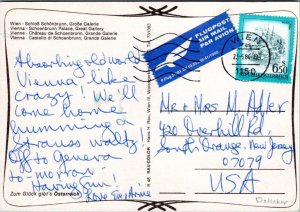 Wien - Schloß Schönbrunn, Große Galerie
Vienna - Schoenbrunn Palace, Great Gallery
Vienne - Château de Schoenbrunn, Grande Galerie
Vienna - Castello di Schoenbrunn, Grande Galerie
Absorbing old world
Vienna like
crazy! We'll
come home
humming a
Strauss waltz!
Off to Geneva
tomorrow
Having fun!
Love Eve & Arnie
Zum Glück gibt's Österreich
FLUGPOST
AIR MAIL
PAR AVION
WIEN
1150
6.50
REPUBLIK ÖSTERREICH
Mr & Mrs H Adler
420 Overhill Rd
South Orange, New Jersey
07079
USA